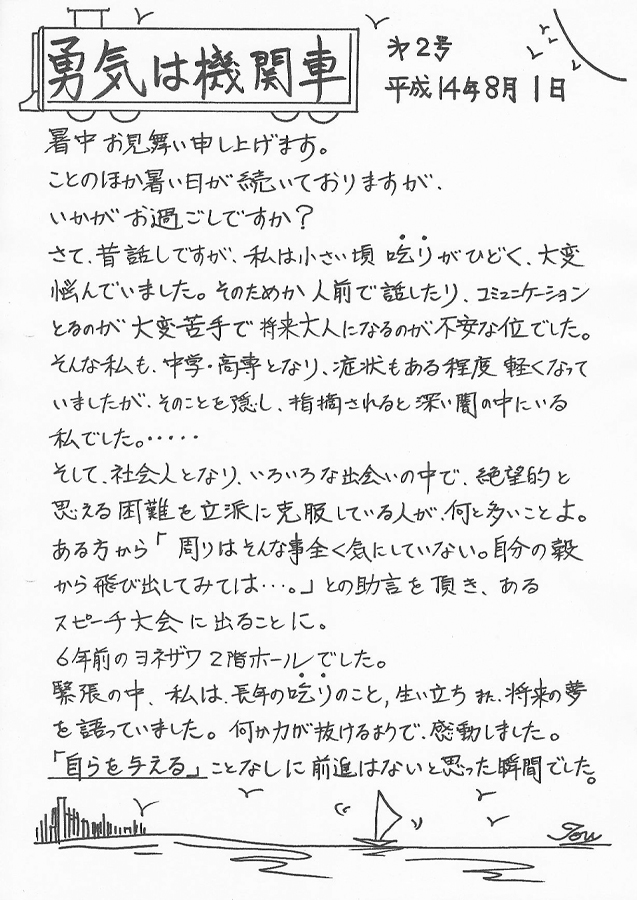 勇気は機関車
第2号
平成14年8月1日
暑中お見舞い申し上げます。
ことのほか暑い日が続いておりますが、
いかがお過ごしですか?
さて、昔話しですが、私は小さい頃 吃りがひどく、大変
悩んでいました。そのためか人前で話したり、コミュニケーション
とるのが大変苦手で将来大人になるのが不安な位でした。
そんな私も、中学・高専となり、症状もある程度 軽くなって
いましたが、そのことを隠し、指摘されると深い闇の中にいる
私でした。・・・・・
そして、社会人となり、いろいろな出会いの中で、絶望的と
思える困難を立派に克服している人が、何と多いことよ。
ある方から「周りはそんな事全く気にしていない。自分の殻
から飛び出してみては…。」との助言を頂き、ある
スピーチ大会に出ることに。
6年前のヨネザワ2階ホールでした。
緊張の中、私は、長年の吃りのこと,生い立ち また、将来の夢
を語っていました。何か力が抜けるようで、感動しました。
「自らを与える」ことなしに前進はないと思った瞬間でした。